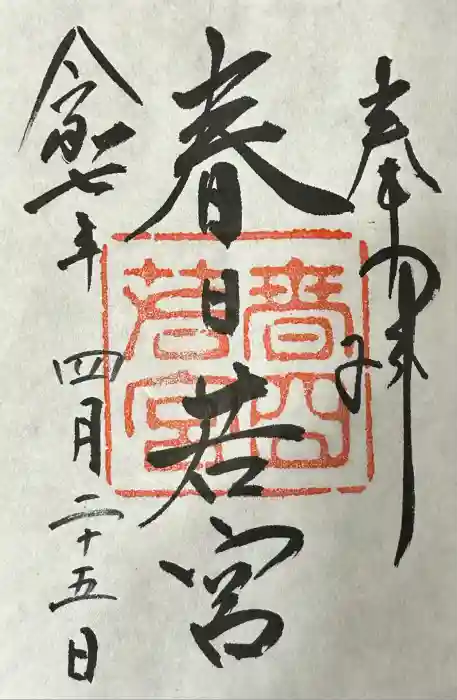 奉拝
春日若宮
令和七年 四月二十五日
春日
若宮